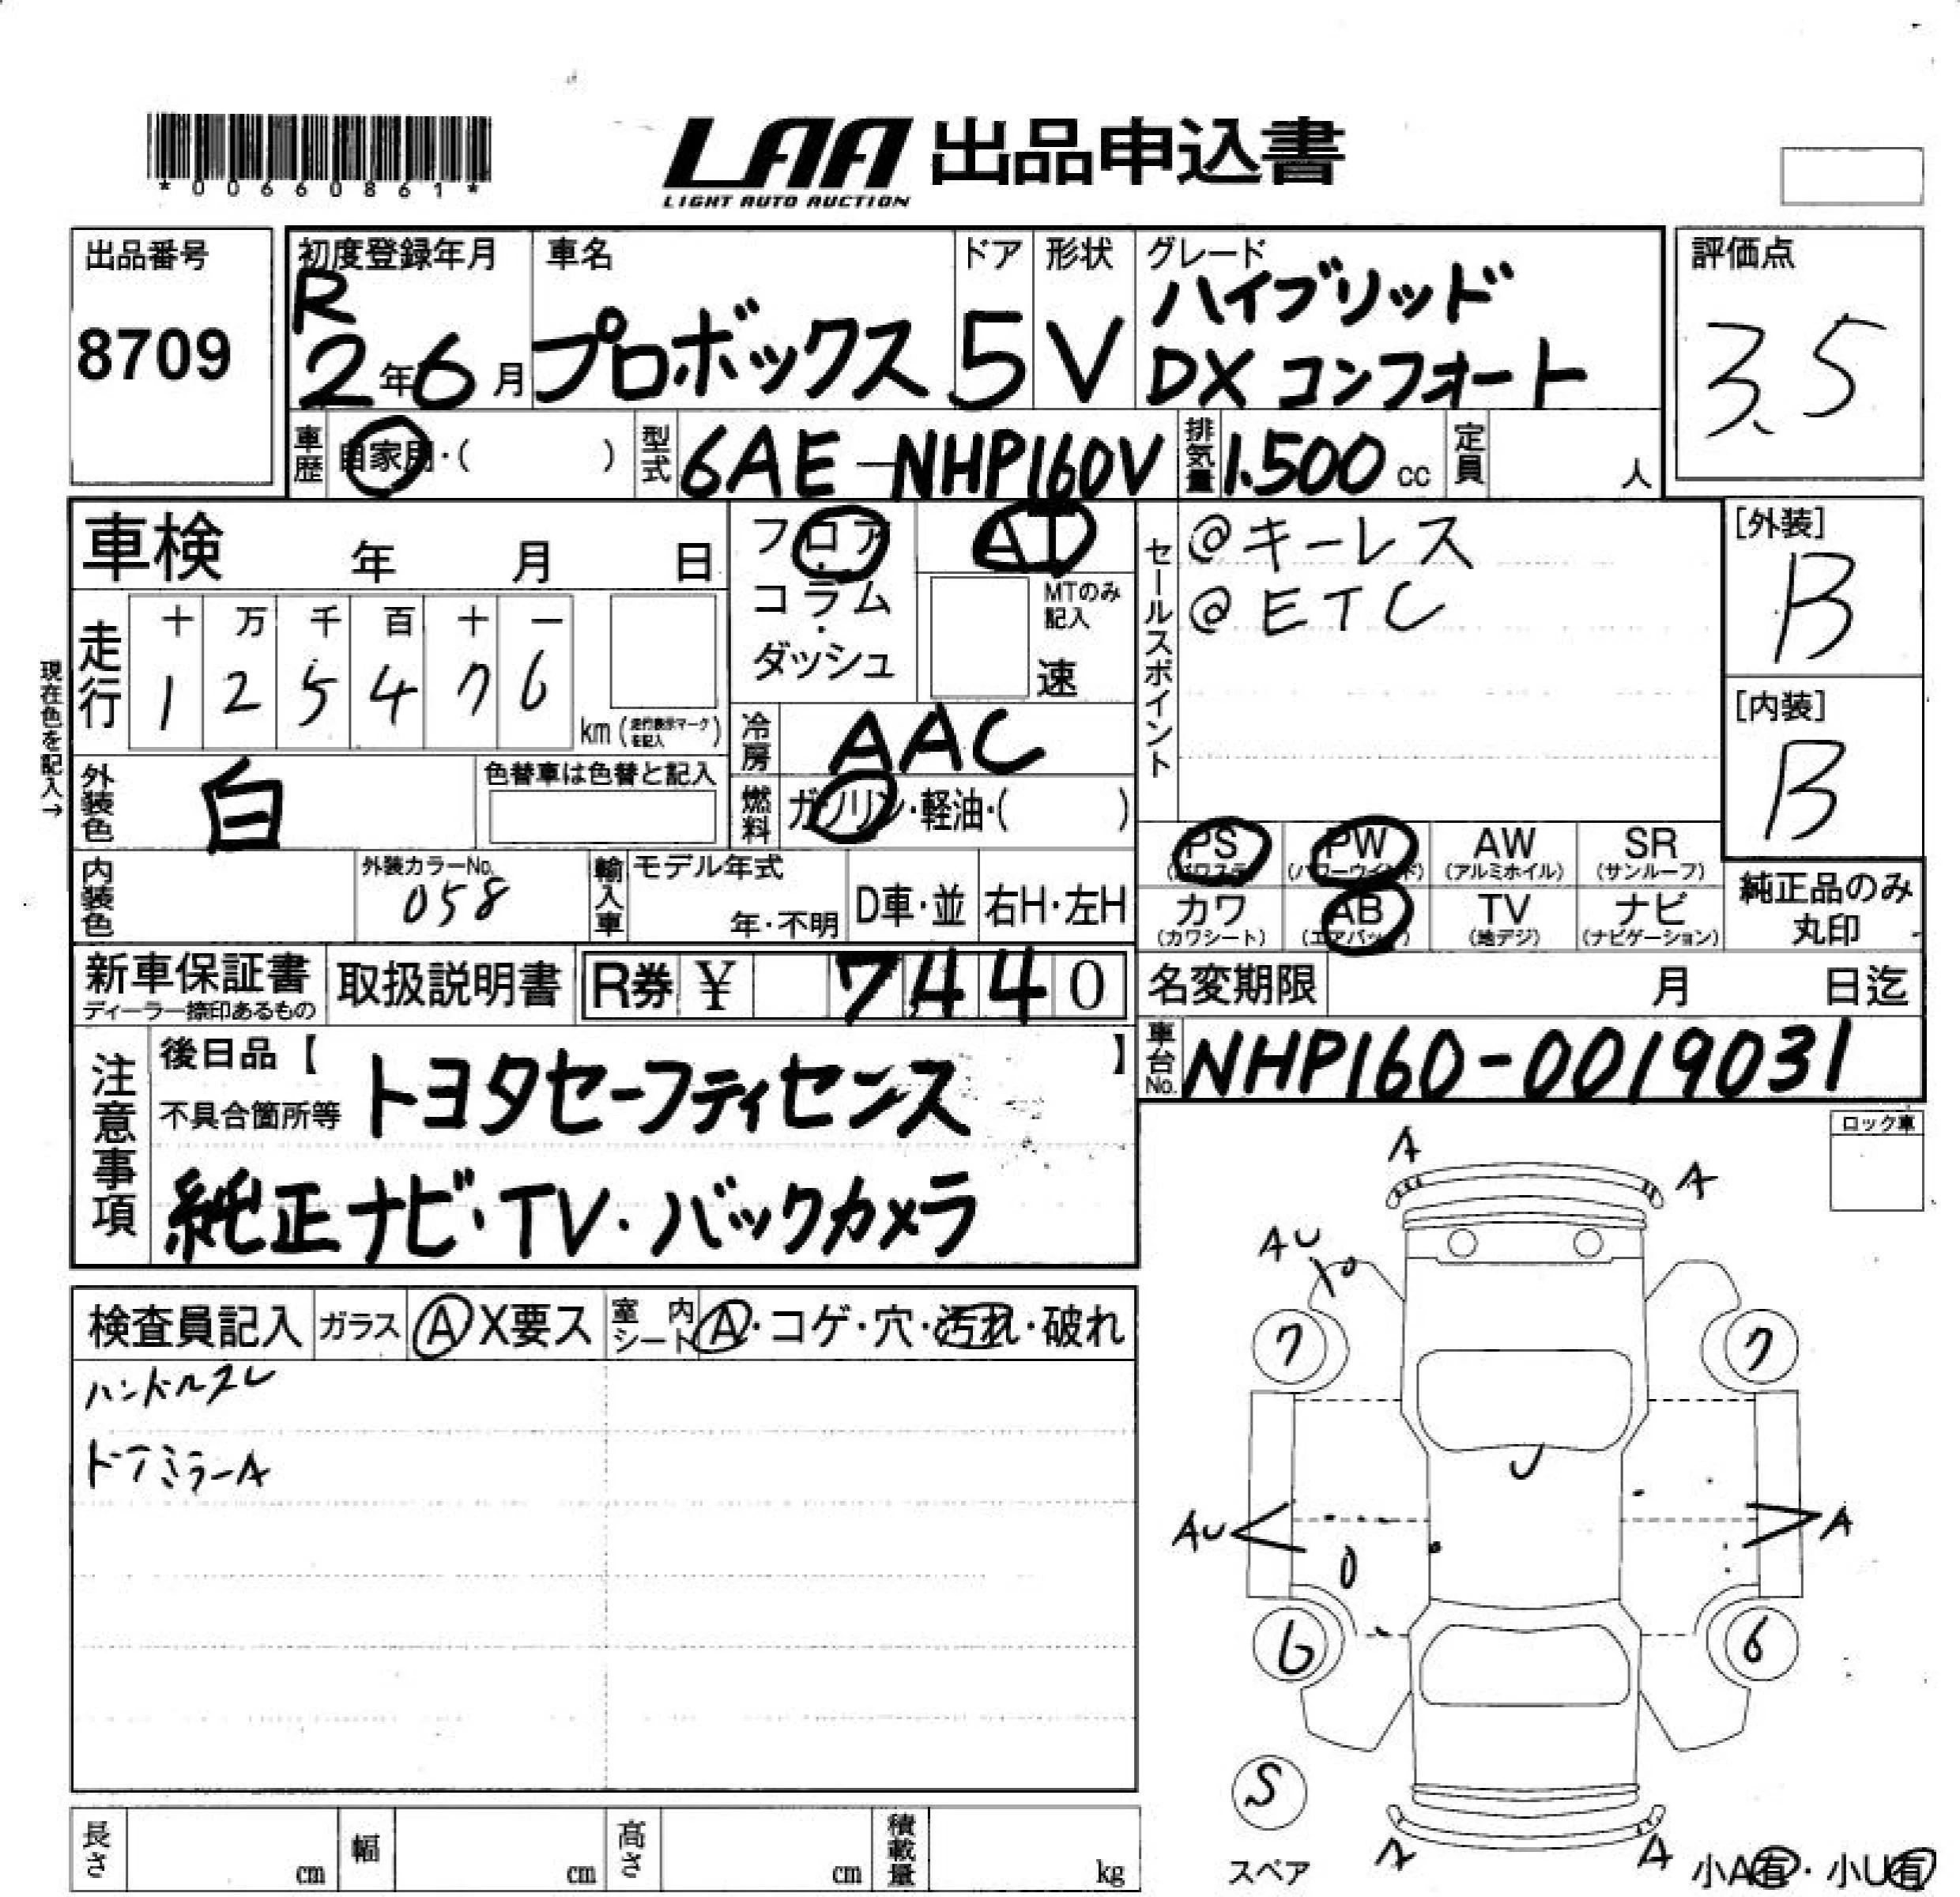 *00660861*
LAA 出品申込書
LIGHT AUTO AUCTION
出品番号
8709
初度登録年月
R
2年6月
車名
プロボックス
ドア
5
形状
V
グレード
ハイブリッド
DXコンフォート
評価点
3.5
車歴 自家用・( )
型式 6AE-NHP160V
排気量 1.500 cc
定員 人
車検 年 月 日
フロア
コラム
・
ダッシュ
AT
MTのみ
記入
速
走行
十 万 千 百 十 一
1 2 5 4 7 6
km (走行表示マークを記入)
現在色を記入→
冷房 AAC
燃料 ガソリン・軽油・( )
外装色 白
色替車は色替と記入
内装色
外装カラーNo.
058
輸入車
モデル年式
年・不明
D車・並
右H・左H
セールスポイント
@キーレス
@ETC
[外装]
B
[内装]
B
PS AW PW SR
(パワステ) (パワーウインド) (アルミホイル) (サンルーフ)
カワ AB TV ナビ
(カワシート) (エアバック) (地デジ) (ナビゲーション)
純正品のみ
丸印
新車保証書
ディーラー捺印あるもの
取扱説明書
R券 ¥ 7440
名変期限 月 日迄
車台No. NHP160-0019031
注意事項
後日品【 】
不具合箇所等
トヨタセーフティセンス
純正ナビ・TV・バックカメラ
ロック車
検査員記入 ガラス A X要ス 室内シート A・コゲ・穴・汚れ・破れ
ハンドルスレ
ドアミラーA
A
A
AU
7
7
U
AU
A
6
6
S
スペア
A
小A有・小U有
長さ cm 幅 cm 高さ cm 積載量 kg